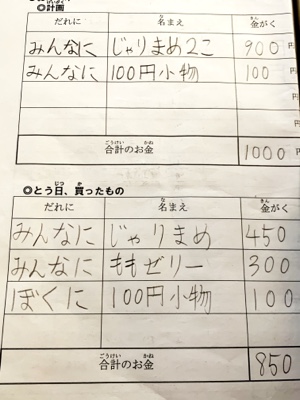 ◎計画
だれに 名まえ 金がく
みんなに じゃりまめ2こ 900 円
みんなに 100円小物 100 円
円
合計のお金 1000 円
◎とう日、買ったもの
だれに 名まえ 金がく
みんなに じゃりまめ 450
みんなに ももゼリー 300
ぼくに 100円小物 100
合計のお金 850